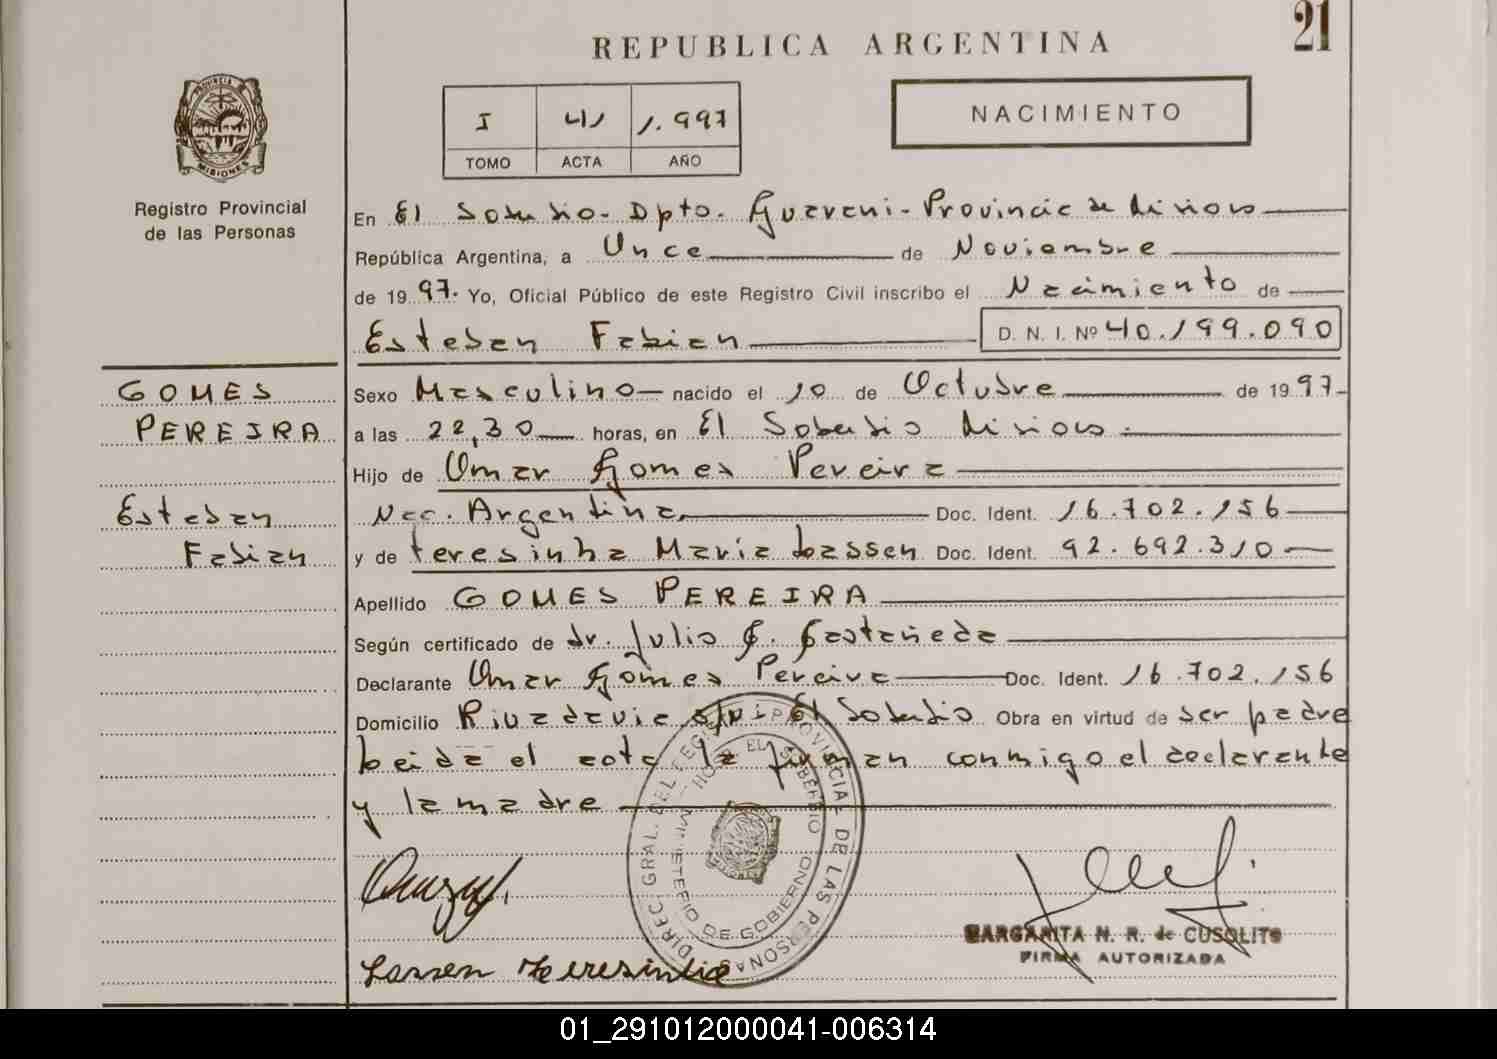 21
REPUBLICA ARGENTINA
NACIMIENTO
I 41 1.997
TOMO ACTA AÑO
PROVINCIA
MISIONES
Registro Provincial
de las Personas
En El Soberbio - Dpto. Guarani - Provincia de Misiones
República Argentina, a Once de Noviembre
de 1997. Yo, Oficial Público de este Registro Civil inscribo el Nacimiento de
Esteban Fabian D. N. I. Nº 40.199.090
GOMES
PEREIRA
Esteban
Fabian
Sexo Masculino nacido el 10 de Octubre de 1997-
a las 22,30 horas, en El Soberbio Misiones.
Hijo de Omar Gomes Pereira
Nac. Argentina, Doc. Ident. 16.702.156
y de teresinha Maria Lassen Doc. Ident. 92.692.310
Apellido GOMES PEREIRA
Según certificado de dr. Julio G. Castañeda
Declarante Omar Gomes Pereira Doc. Ident. 16.702.156
Domicilio Rivadavia s/n - El Soberbio Obra en virtud de ser padre
Leida el acta la firman conmigo el declarante
y la madre
DIREC. GRAL. DEL REGIS. PROVINCIAL DE LAS PERSONAS
EL SOBERBIO
MINISTERIO DE GOBIERNO
MARGARITA N. R. de CUSOLITO
FIRMA AUTORIZADA
Lassen Teresinha
01_291012000041-006314